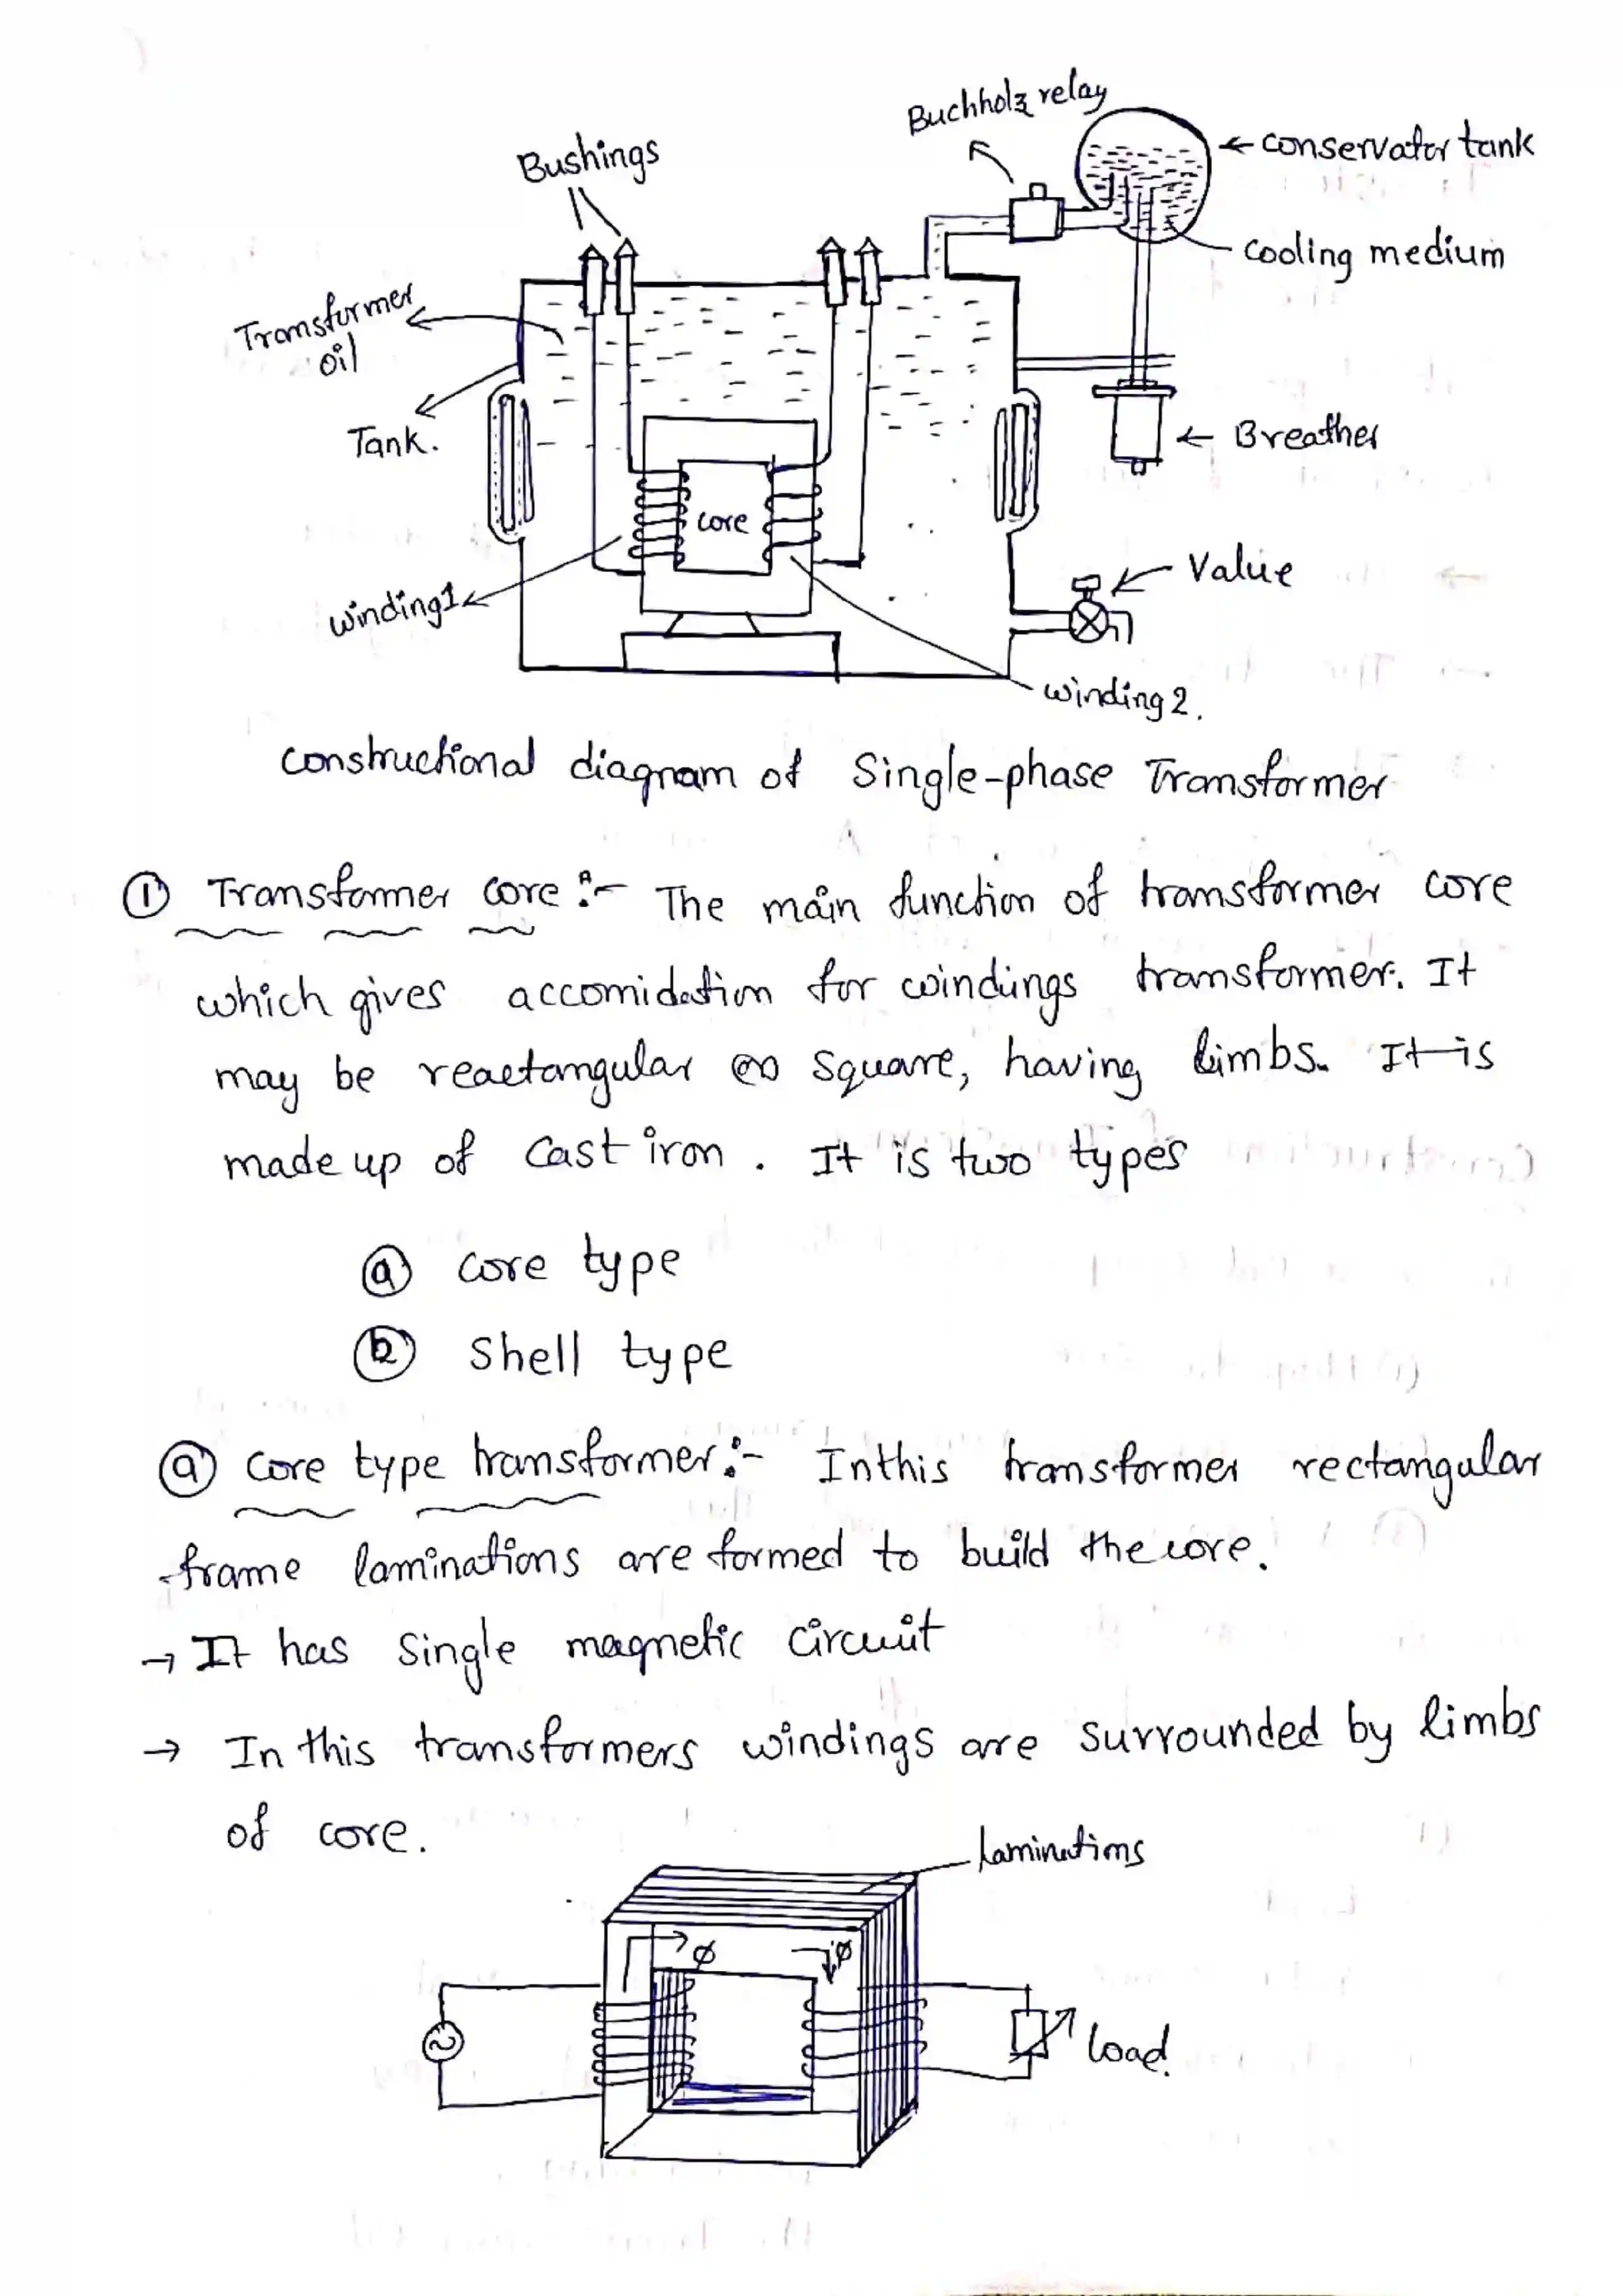 Buchholz relay
Bushings
conservator tank
cooling medium
Transformer
oil
Tank.
Breather
core
Value
winding1
winding 2.
constructional diagram of Single-phase Transformer
① Transformer core :- The main function of transformer core
which gives accomidation for windings transformer. It
may be reactangular (or) square, having limbs. It is
made up of cast iron . It is two types
ⓐ core type
ⓑ shell type
ⓐ core type transformer:- Inthis transformer rectangular
frame laminations are formed to build the core.
→ It has single magnetic circuit
→ In this transformers windings are surrounded by limbs
of core.
laminations
ϕ ϕ
load.